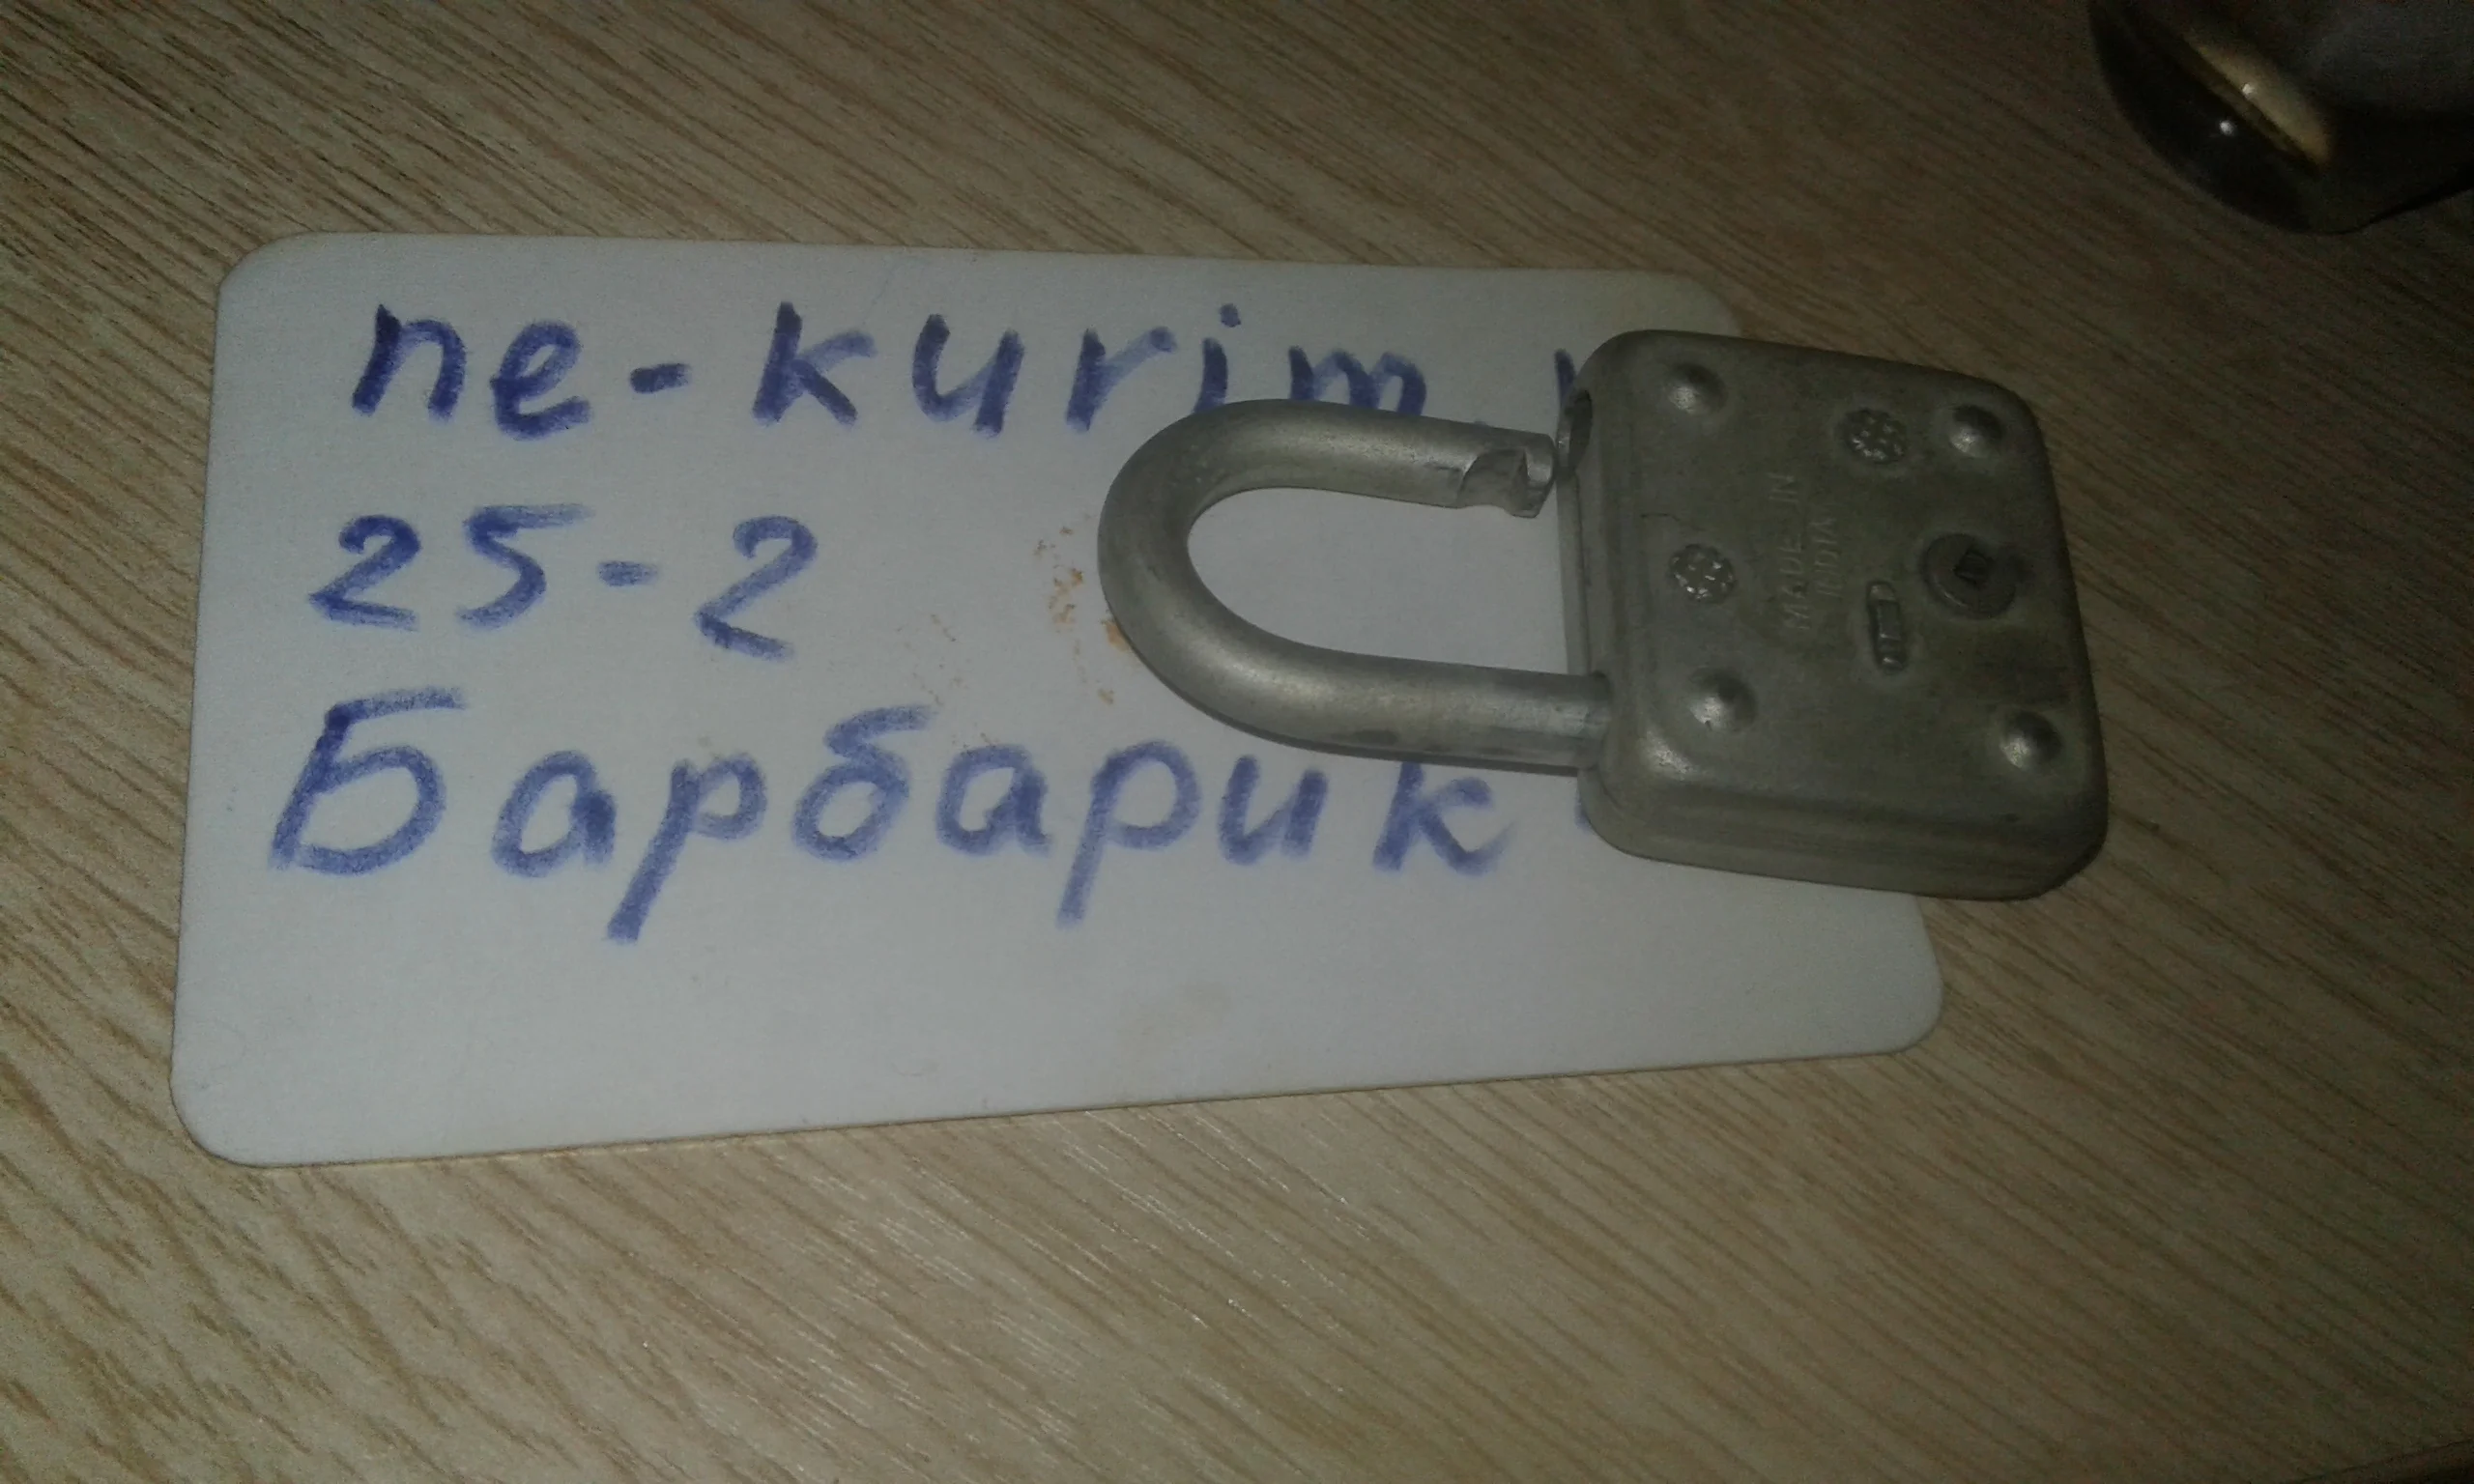 ne-kurim.
25-2
Барбарик
MADE IN
INDIA